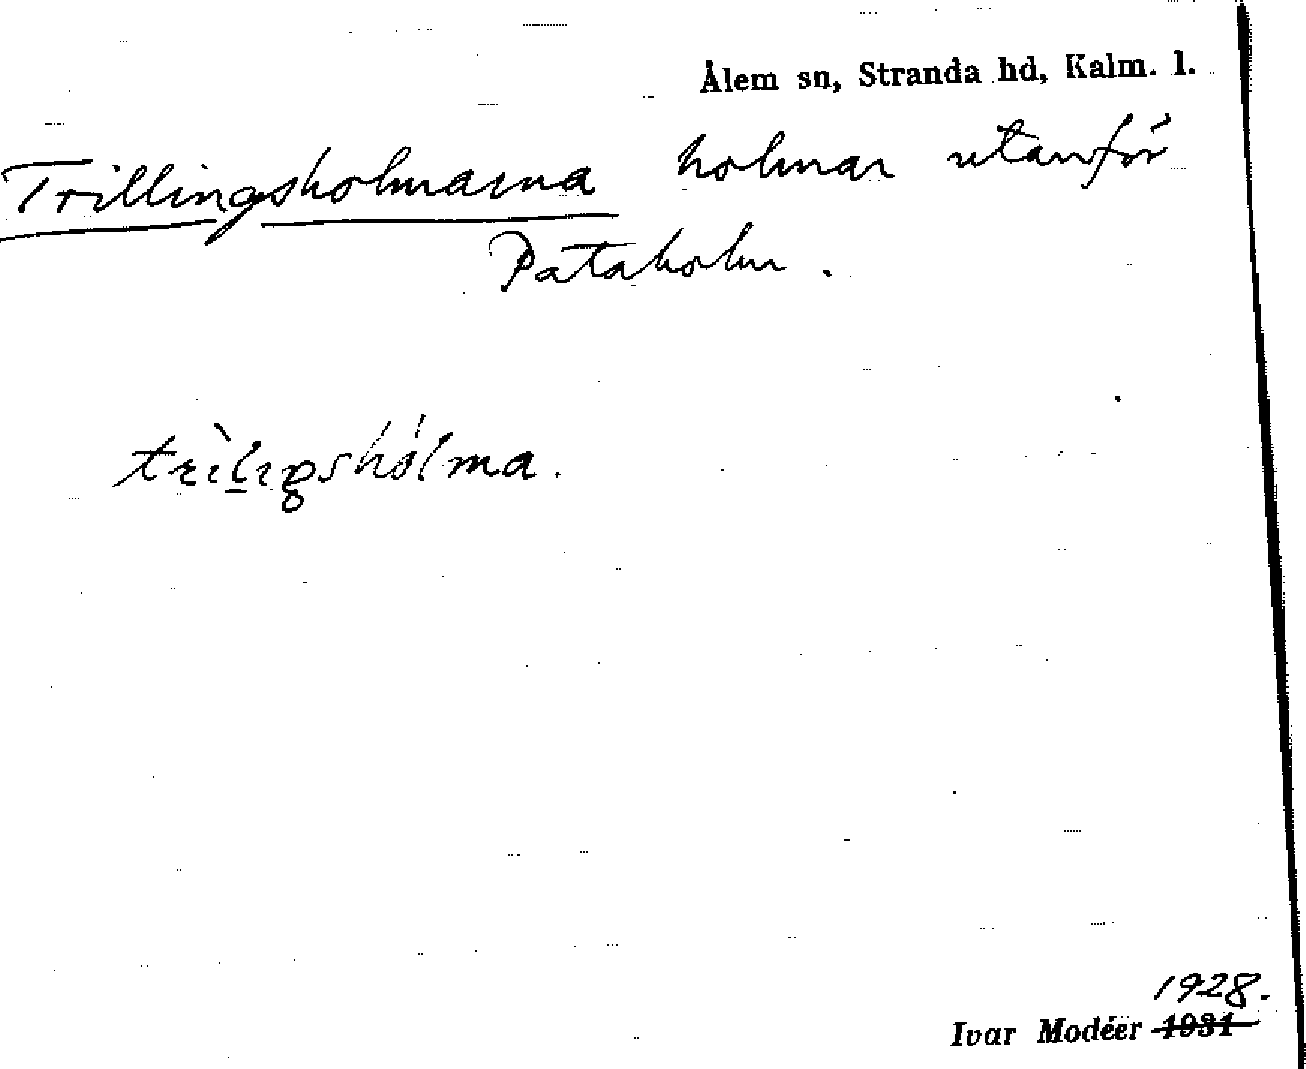 Ålem sn, Stranda hd, Kalm. l.
Trillingsholmarna holmar utanför
Pataholm.
1928.
Ivar Modéer 1931